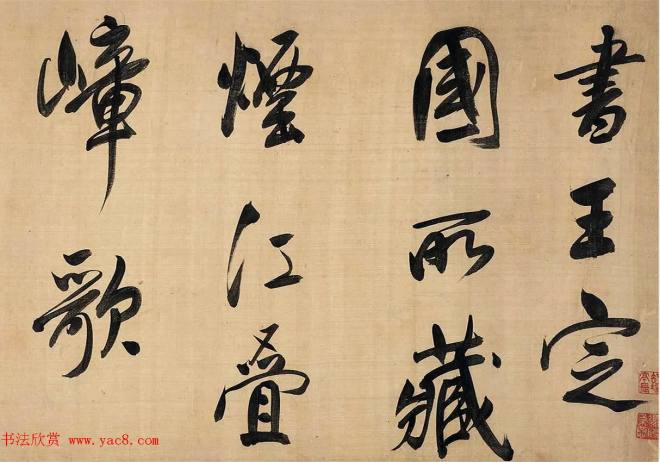 書王定
國所藏
煙江疊
嶂歌
书法欣赏 www.yac8.com